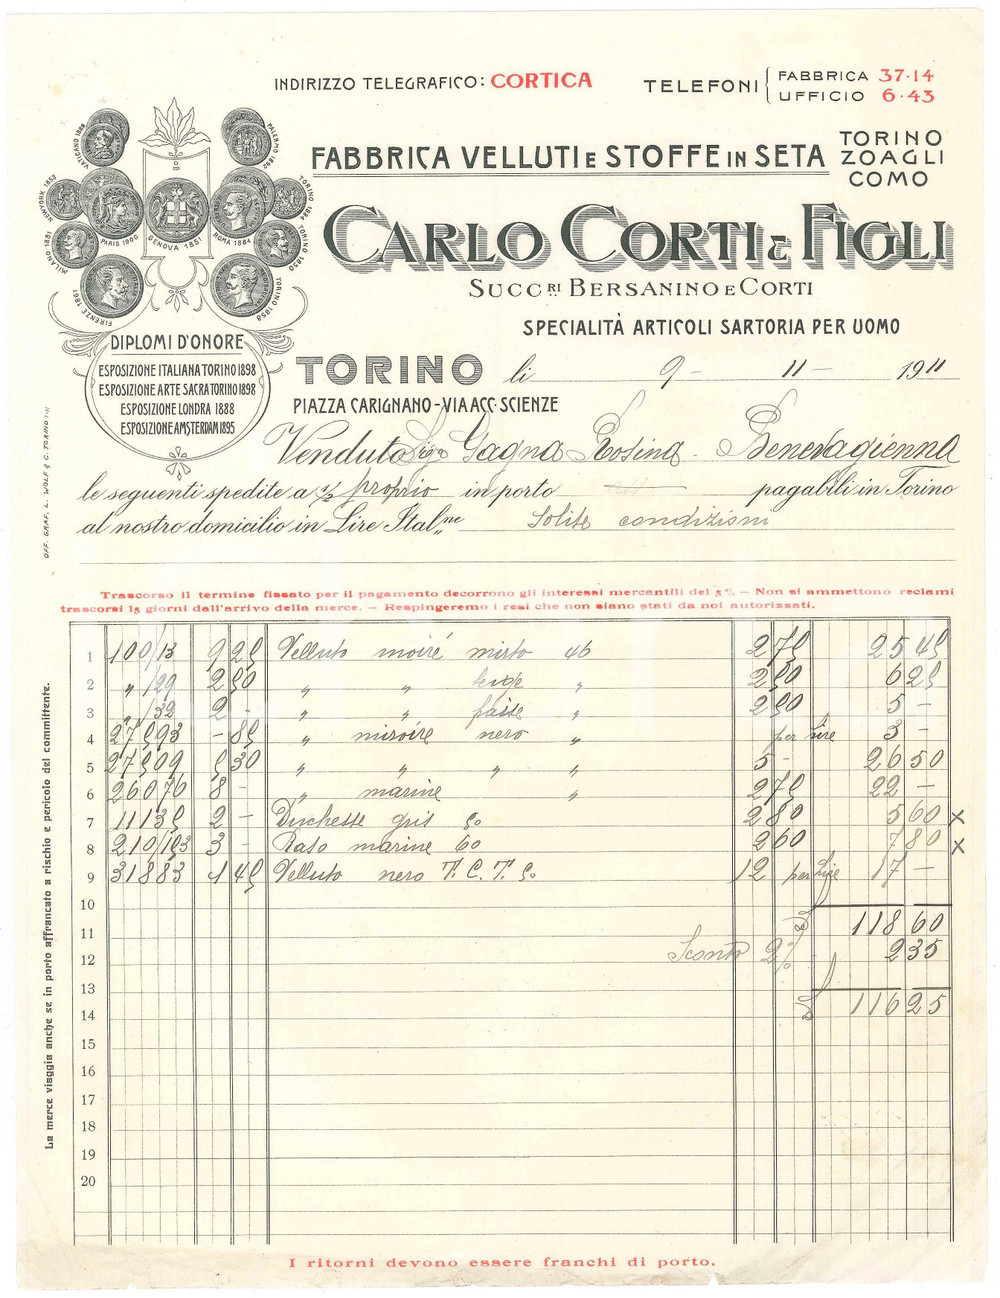 INDIRIZZO TELEGRAFICO: CORTICA
TELEFONI { FABBRICA 37·14
UFFICIO 6·43
FABBRICA VELLUTI E STOFFE IN SETA
TORINO
ZOAGLI
COMO
CARLO CORTI & FIGLI
SUCC.RI BERSANINO E CORTI
SPECIALITÀ ARTICOLI SARTORIA PER UOMO
PALERMO 1892
NEW-YORK 1853
TORINO 1884
PARIS 1900
GENOVA 1851
ROMA 1884
MILANO 1881
TORINO 1850
FIRENZE 1861
TORINO 1858
DIPLOMI D'ONORE
ESPOSIZIONE ITALIANA TORINO 1898
ESPOSIZIONE ARTE SACRA TORINO 1898
ESPOSIZIONE LONDRA 1888
ESPOSIZIONE AMSTERDAM 1895
TORINO li 9 - 11 - 1911
PIAZZA CARIGNANO - VIA ACC. SCIENZE
Venduto Sig.a Gagna Rosina - Benevagienna
le seguenti spedite a 1/2 proprio in porto pagabili in Torino
al nostro domicilio in Lire Ital.ne Solite condizioni
Trascorso il termine fissato per il pagamento decorrono gli interessi mercantili del 5 % - Non si ammettono reclami
trascorsi 15 giorni dall'arrivo della merce. - Respingeremo i resi che non siano stati da noi autorizzati.
1 100/13 9 25 Velluto moiré mirto 46 2 75 25 45
2 " /29 2 50 " " beige " 2 50 6 25
3 " /32 2 - " " " 2 50 5 -
4 27593 - 85 " miroire nero " per lire 3 -
5 27509 5 30 " " " " 5 - 26 50
6 26076 8 - " marine " 2 75 22 -
7 11135 2 - Duchesse gris 50 2 80 5 60 x
8 210/103 3 - Raso marine 60 2 60 7 80 x
9 31883 1 45 Velluto nero T. C. T. 50 12 per lire 17 -
10
11 118 60
12 Sconto 2% 2 35
13
14 116 25
15
16
17
18
19
20
I ritorni devono essere franchi di porto.
OFF. GRAF. L. WOLF & C. TORINO
La merce viaggia anche se in porto affrancato a rischio e pericolo del committente.